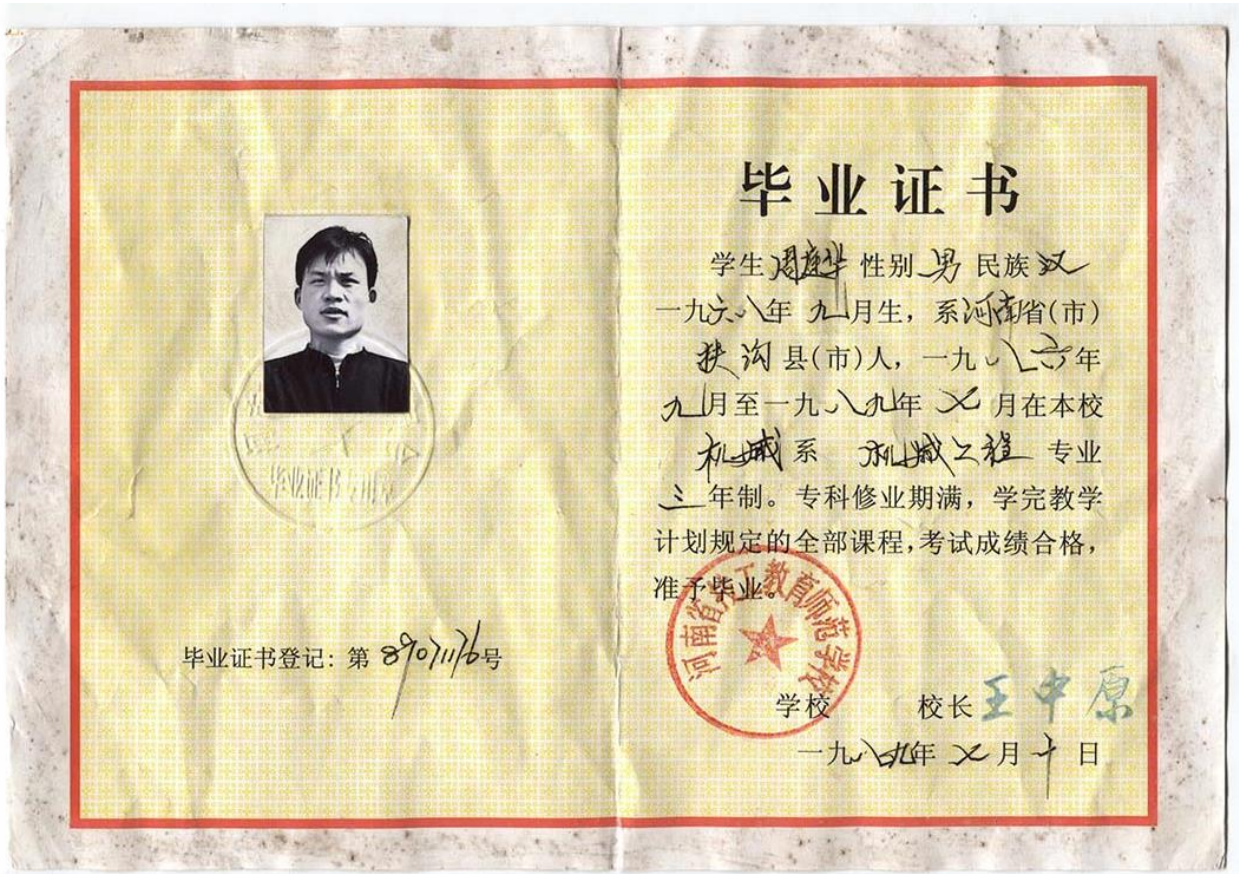 毕业证书登记: 第 8907116号
毕业证书专用章
毕业证书
学生周建华 性别 男 民族 汉
一九六八年 九月生，系河南省(市)
扶沟县(市)人，一九八六年
九月至一九八九年 七 月在本校
机械系 机械工程 专业
三年制。专科修业期满，学完教学
计划规定的全部课程,考试成绩合格，
准予毕业。
河南省技工教育师范学校
学校 校长 王中原
一九八九年 七月十日